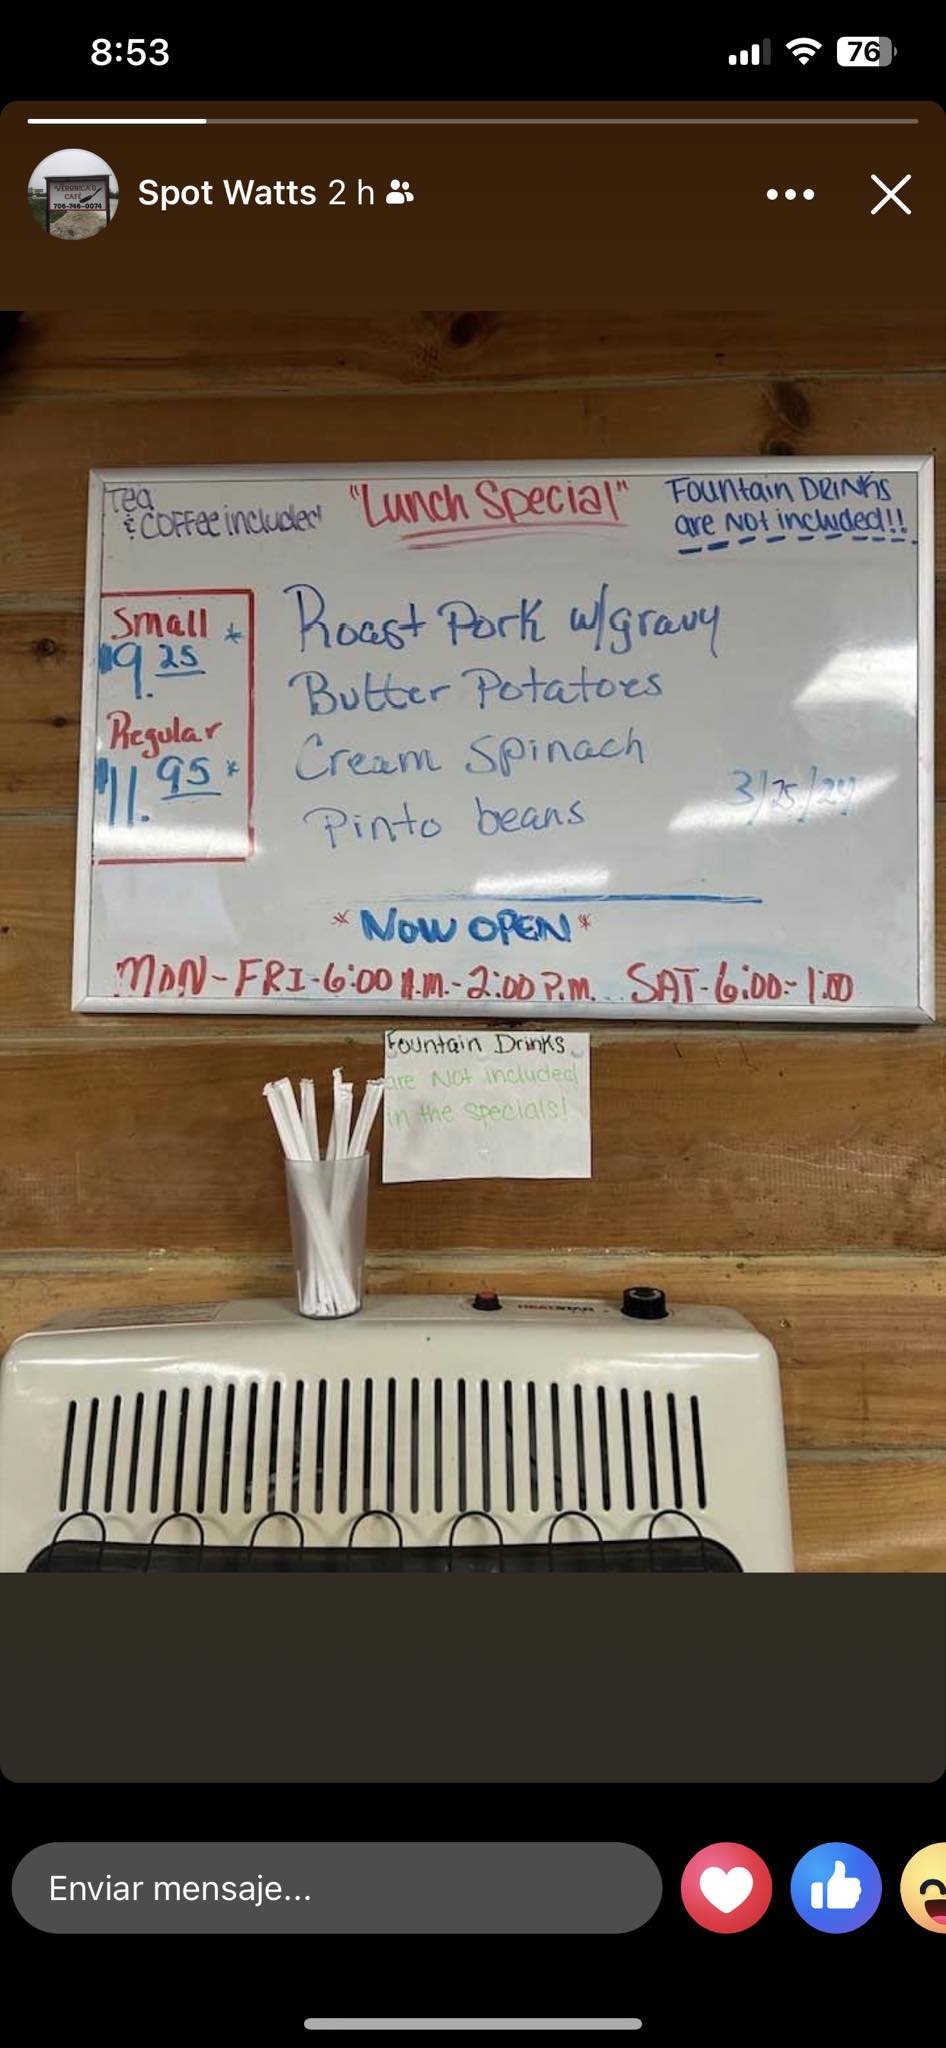 8:53
76
Spot Watts 2 h
"VERONICA'S
CAFE
706-746-0074
Tea
& COFFee included
"Lunch Special"
Fountain DRINKS
are Not included!!
Small *
$9.25
Regular
$11.95 *
Roast Pork w/gravy
Butter Potatoes
Cream Spinach
Pinto beans
3/25/24
* NOW OPEN *
MON-FRI-6:00 A.M.-2:00 P.M. SAT-6:00-1:00
Fountain Drinks
are Not included
in the specials!
HEATSTAR
Enviar mensaje...